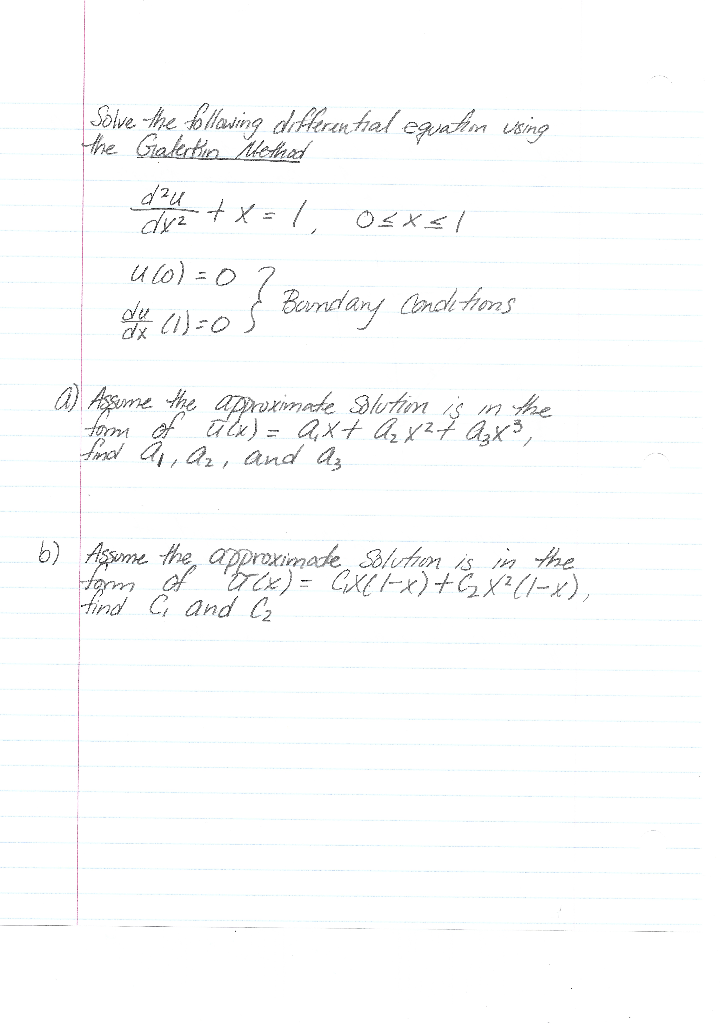 Solve the following differential equation using
the Galerkin Method
d²u/dx² + x = 1, 0 ≤ x ≤ 1
u(0) = 0
du/dx (1) = 0 } Boundary Conditions
a) Assume the approximate solution is in the
form of ū(x) = a₁x + a₂x² + a₃x³,
find a₁, a₂, and a₃
b) Assume the approximate solution is in the
form of ū(x) = C₁x(1-x) + C₂x²(1-x),
find C₁ and C₂